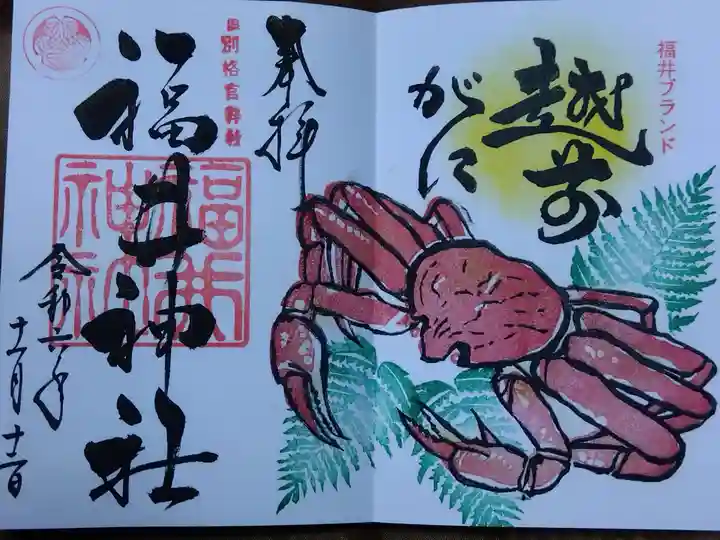 福井ブランド
越前
がに
奉拝
旧別格官幣社
福井神社
福井神社
令和六年
十一月十二日